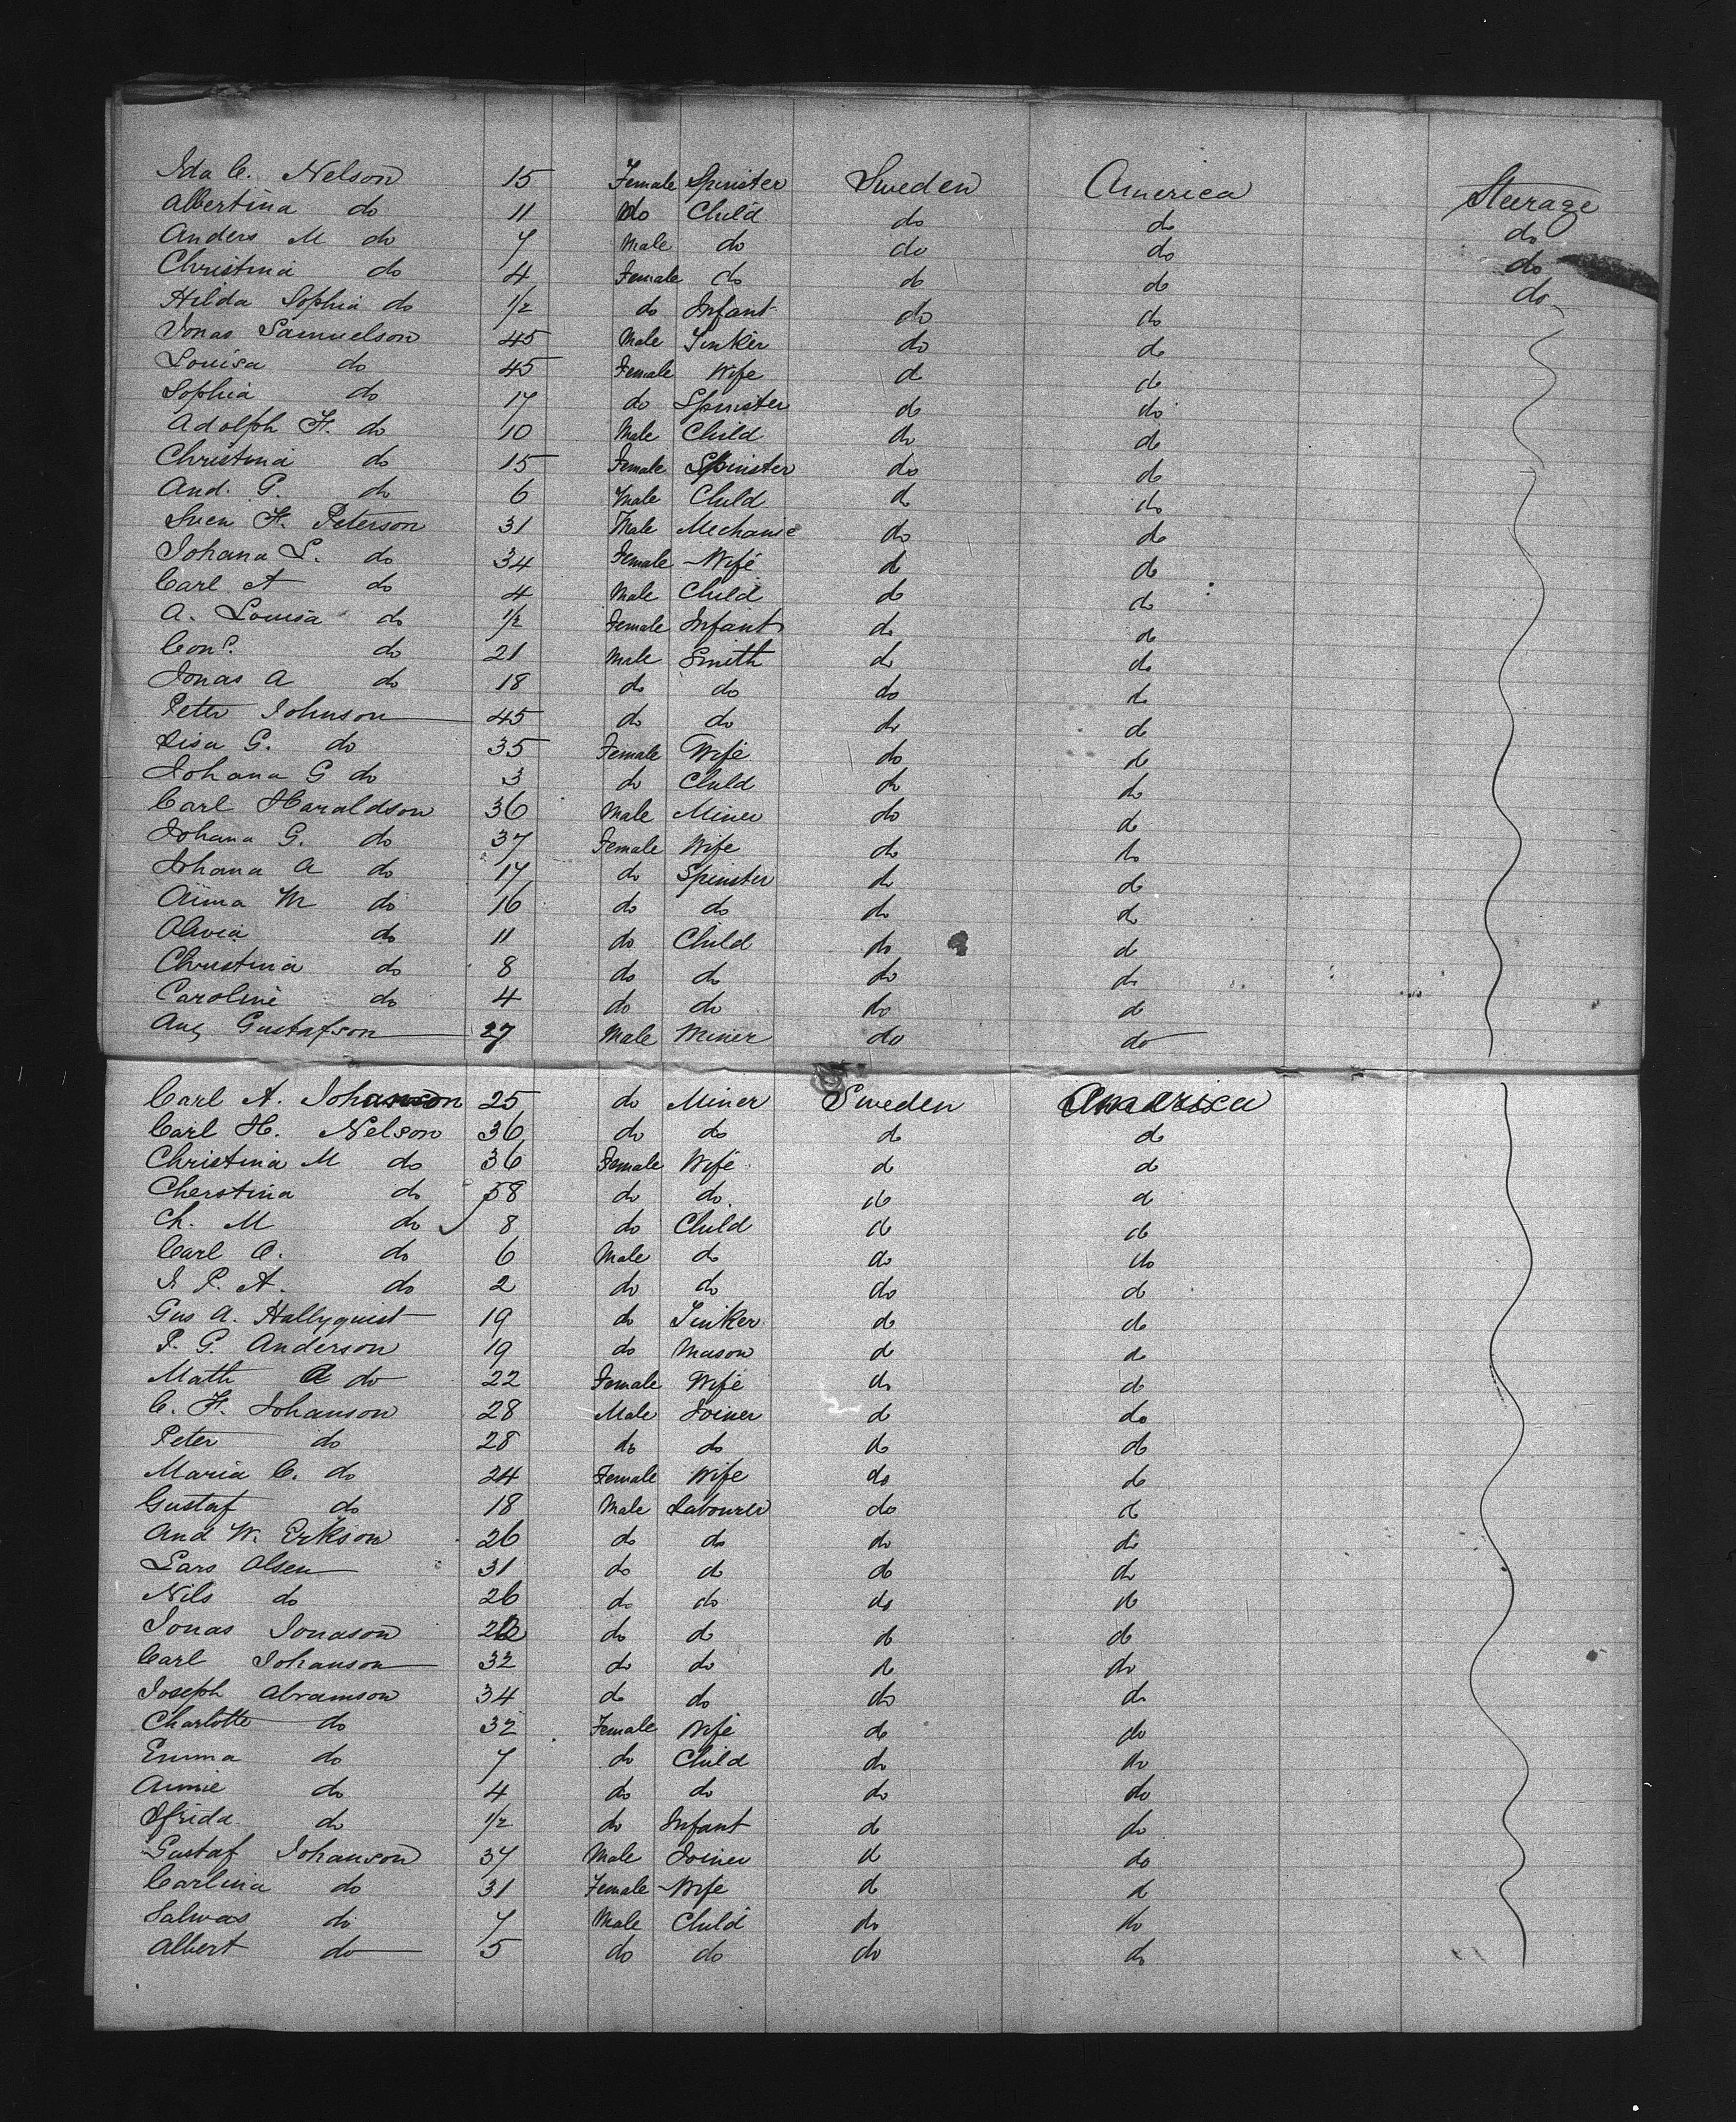 Ida C. Nelson 15 Female Spinster Sweden America Steerage
Albertina do 11 do Child do do do
Anders M do 7 Male do do do do
Christina do 4 Female do do do do
Hilda Sophia do 1/2 do Infant do do
Jonas Samuelson 45 Male Tinker do do
Louisa do 45 Female Wife do do
Sophia do 17 do Spinster do do
Adolph F. do 10 Male Child do do
Christina do 15 Female Spinster do do
And. P. do 6 Male Child do do
Sven F. Peterson 31 Male Mechanic do do
Johana L. do 34 Female Wife do do
Carl A do 4 Male Child do do
A. Louisa do 1/2 Female Infant do do
Con. do 21 Male Smith do do
Jonas A do 18 do do do do
Peter Johnson 45 do do do do
Lisa G. do 35 Female Wife do do
Johana G do 3 do Child do do
Carl Haraldson 36 Male Miner do do
Johana G. do 37 Female Wife do do
Johana A do 17 do Spinster do do
Anna M do 16 do do do do
Olivia do 11 do Child do do
Christina do 8 do do do do
Caroline do 4 do do do do
Aug Gustafson 27 Male Miner do do
Carl A. Johanson 25 do Miner Sweden America
Carl H. Nelson 36 do do do do
Christina M do 36 Female Wife do do
Cherstina do 58 do do do do
Ch. M do 8 do Child do do
Carl O. do 6 Male do do do
P. A. do 2 do do do do
Gus A. Hallyquist 19 do Tinker do do
P. G. Anderson 19 do Mason do do
Math do 22 Female Wife do do
C. F. Johanson 28 Male Joiner do do
Peter do 28 do do do do
Maria C. do 24 Female Wife do do
Gustaf do 18 Male Labourer do do
And W. Erkson 26 do do do do
Lars Olsen 31 do do do do
Nils do 26 do do do do
Jonas Jonason do do do do
Carl Johanson 32 do do do do
Joseph Abramson 34 do do do do
Charlotte do 32 Female Wife do do
Emma do 7 do Child do do
Annie do 4 do do do do
do 1/2 do Infant do do
Gustaf Johanson 37 Male Joiner do do
Carlina do 31 Female Wife do do
do 7 Male Child do do
Albert do 5 do do do do